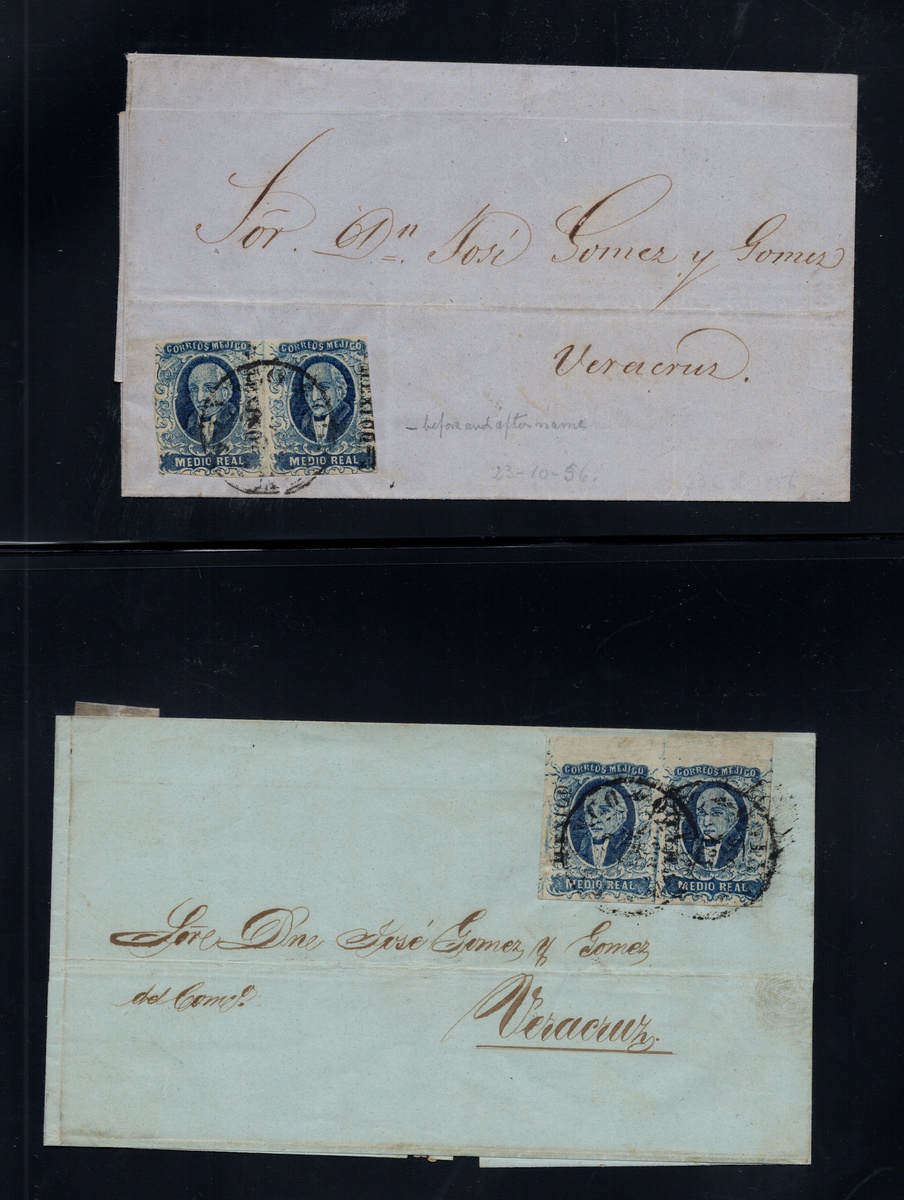 Sor. Dn. José Gomez y Gomez
Veracruz.
CORREOS MEJICO CORREOS MEJICO
MEXICO
MEDIO REAL MEDIO REAL
– before and after name
23-10-56.
CORREOS MEJICO CORREOS MEJICO
MEXICO
MEDIO REAL MEDIO REAL
Sore Dne José Gomez y Gomez
del Como.
Veracruz.